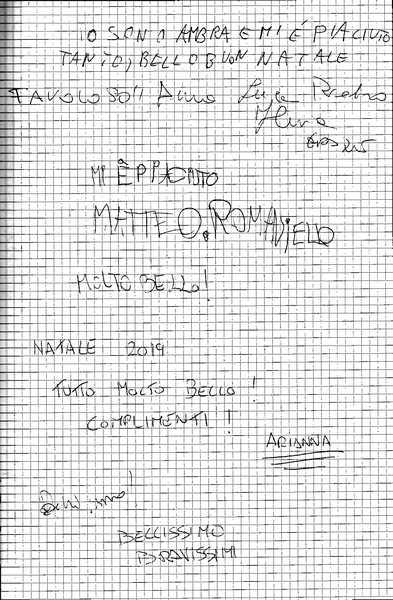 IO SONO AMBRA E MI È PIACIUTO
TANTO, BELLO BUON NATALE
FAVOLOSO!! Anna Luca Pietro
MI È PIACIUTO
MATTEO ROMANIELLO
MOLTO BELLO!
NATALE 2019
TUTTO MOLTO BELLO!
COMPLIMENTI!
ARIANNA
BELLISSIMO
BRAVISSIMI